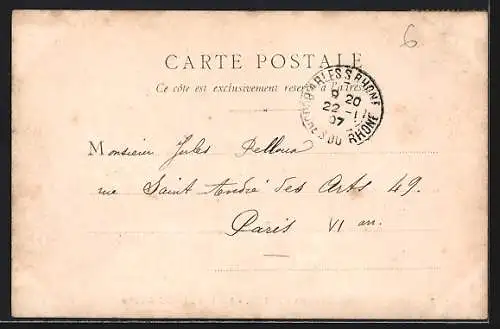 6
CARTE POSTALE
Ce côté est exclusivement réservé à l'adresse
ARLES S RHONE
8 20
22 - 11
07
DU RHONE
Monsieur Jules Pelloux
rue Saint André des Arts 49.
Paris VI arr.